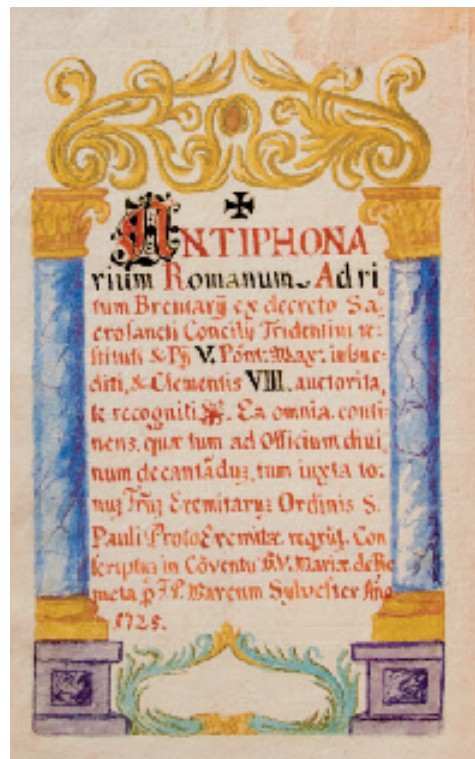 ANTIPHONA
rium Romanum Ad ri
tum Breviarij ex decreto Sa
crosancti Concilij Tridentini re
stituti & Pij V. Pont. Max. iussu e
diti, & Clementis VIII. auctorita
te recogniti. Ea omnia conti
nens, quæ tum ad Officium divi
num decantãdũ, tum iuxta to
Eremitarũ Ordinis S.
Pauli ProtoEremitæ Con
scripta in Cõventu B.V. Mariæ de Re
meta p Marcum Sylvester
1725.